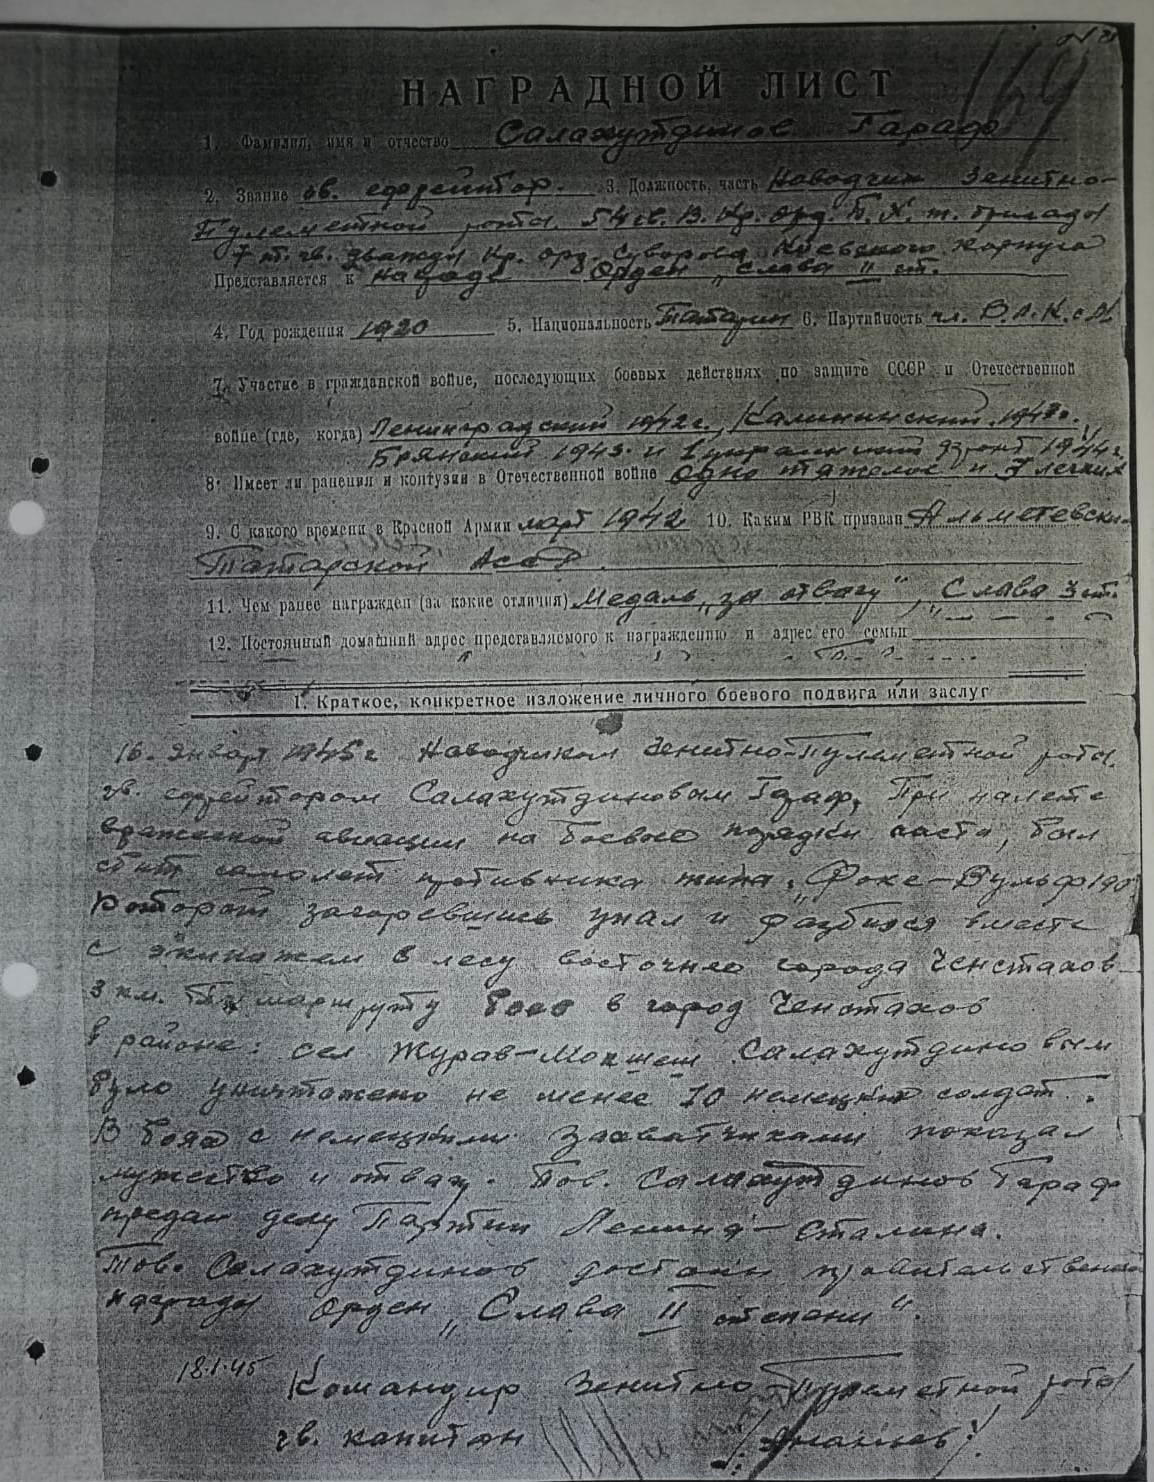 169
НАГРАДНОЙ ЛИСТ
1. Фамилия, имя и отчество Салахутдинов Гараф
2. Звание гв. ефрейтор. 3. Должность, часть Наводчик Зенитно-
Пулеметной роты 54 гв. В. Кр. орд. Б. Х. т. бригады
7 гв. дважды Кр. орд. Суворова Киевского корпуса
Представляется к награде Орден „Слава II ст.
4. Год рождения 1920 5. Национальность Татарин 6. Партийность чл. В.Л.К.с.М.
7. Участие в гражданской войне, последующих боевых действиях по защите СССР и Отечественной
войне (где, когда) Ленинградский 1942 г., Калининский 1943г.
Брянский 1943 и 1 украинский фронт 1944 г.
8. Имеет ли ранения и контузии в Отечественной войне одно тяжелое и 3 легких
9. С какого времени в Красной Армии март 1942 10. Каким РВК призван Альметевски
Татарской Асср.
11. Чем ранее награжден (за какие отличия) Медаль „за отвагу", „Слава 3 ст.
12. Постоянный домашний адрес представляемого к награждению и адрес его семьи
1. Краткое, конкретное изложение личного боевого подвига или заслуг
16. Январ 1945 г Наводчиком Зенитно-Пулеметной роты
гв. ефрейтором Салахутдиновым Гараф, При налете
вражеской авиации на боевые порядки части, был
сбит самолет противника типа „Фоке-Вульф 190
который загоревшись упал и разбился вместе
с экипажем в лесу восточнее города Ченстахов
3 км. По маршруту боев в город Ченстахов
в районе: сел Журав-Мокшеш Салахутдиновым
було уничтожено не менее 10 немецких солдат.
В боях с немецкими захватчиками показал
мужество и отвагу. Тов. Салахутдинов Гараф
предан делу Партии Ленина-Сталина.
Тов. Салахутдинов достоин правительственной
награды Орден „Слава II степени".
18.1.45
Командир Зенитно-Пулеметной роты
гв. капитан /Ананьев/